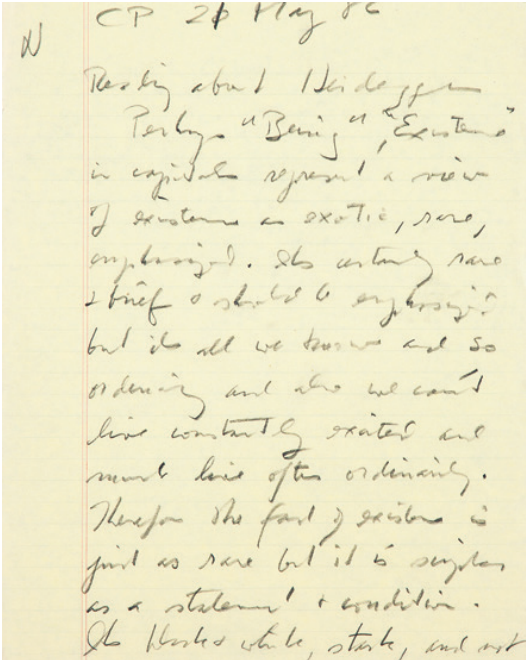 N
CP 21 May 86
Reading about Heidegger
Perhaps "Being", "Existence"
in capitals represent a view
of existence as exotic, rare,
emphasized. Its certainly rare
& brief & should be emphasized
but its all we know and so
ordinary and also we can't
live constantly excited and
must live often ordinarily.
Therefore the fact of existence is
just as rare but it is simpler
as a statement + condition.
Its black & white, stark, and not